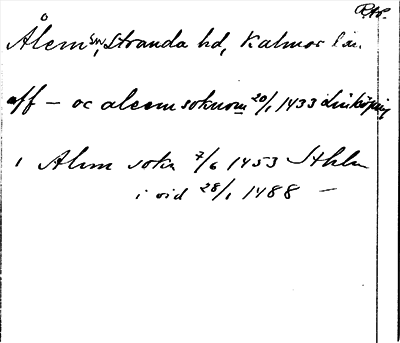 RAp.
Ålem sn, Stranda hd, Kalmar län.
aff - oc aleem soknom 20/1 1433 Linköping
i Alem sokn 7/6 1453 Sthlm
i vid 28/1 1488 —